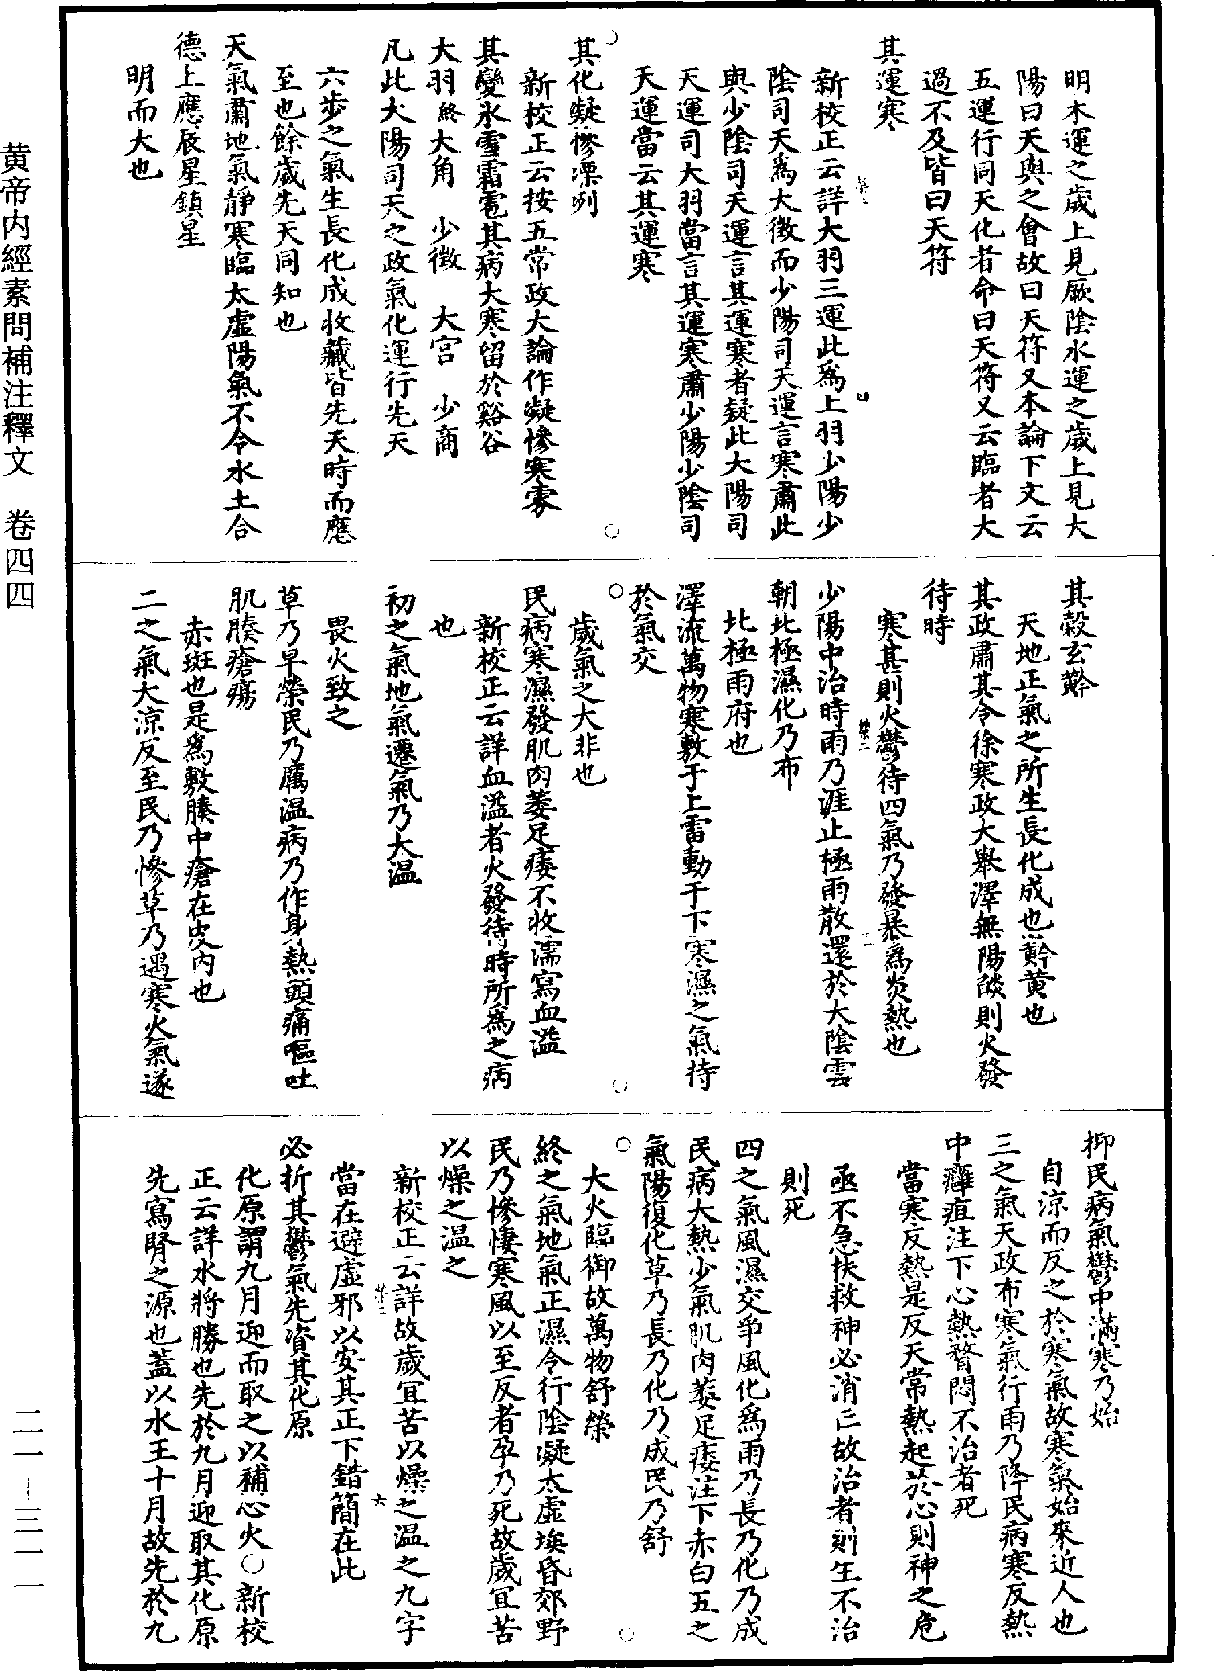 明木運之歲上見厥陰水運之歲上見大
陽曰天與之會故曰天符又本論下文云
五運行同天化者命曰天符又云臨者大
過不及皆曰天符
其運寒
新校正云詳大羽三運此爲上羽少陽少
陰司天爲大徵而少陽司天運言寒肅此
與少陰司天運言其運寒者疑此大陽司
天運司大羽當言其運寒肅少陽少陰司
天運當云其運寒
其化凝慘凓冽
新校正云按五常政大論作凝慘寒雰
其變氷雪霜雹其病大寒留於谿谷
大羽終大角　少徵　大宫　少商
凡此大陽司天之政氣化運行先天
六步之氣生長化成收藏皆先天時而應
至也餘歲先天同知也
天氣肅地氣靜寒臨太虛陽氣不令水土合
德上應辰星鎮星
明而大也
其穀玄黅
天地正氣之所生長化成也黅黄也
其政肅其令徐寒政大舉澤無陽燄則火發
待時
寒甚則火鬱待四氣乃發暴爲炎熱也
少陽中治時雨乃涯止極雨散還於大陰雲
朝北極濕化乃布
北極雨府也
澤流萬物寒敷于上雷動于下寒濕之氣持
於氣交
歲氣之大非也
民病寒濕發肌肉萎足痿不收濡寫血溢
新校正云詳血溢者火發待時所爲之病
也
初之氣地氣遷氣乃大温
畏火致之
草乃早榮民乃厲温病乃作身熱頭痛嘔吐
肌腠瘡瘍
赤斑也是爲敷腠中瘡在皮内也
二之氣大凉反至民乃慘草乃遇寒火氣遂
抑民病氣鬱中滿寒乃始
自凉而反之於寒氣故寒氣始來近人也
三之氣天政布寒氣行雨乃降民病寒反熱
中癰疽注下心熱瞀悶不治者死
當寒反熱是反天常熱起於心則神之危
亟不急扶救神必消亡故治者則生不治
則死
四之氣風濕交爭風化爲雨乃長乃化乃成
民病大熱少氣肌肉萎足痿注下赤白五之
氣陽復化草乃長乃化乃成民乃舒
大火臨御故萬物舒榮
終之氣地氣正濕令行陰凝太虛埃昏郊野
民乃慘悽寒風以至反者孕乃死故歲宜苦
以燥之温之
新校正云詳故歲宜苦以燥之温之九字
當在避虛邪以安其正下錯簡在此
必折其鬱氣先資其化原
化原謂九月迎而取之以補心火〇新校
正云詳水將勝也先於九月迎取其化原
先寫腎之源也蓋以水王十月故先於九
黄帝内經素問補注釋文　卷四四
二一—三一一